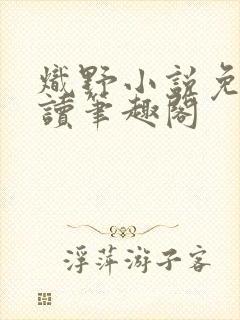 熾野小說免
讀筆趣閣
浮萍游子客